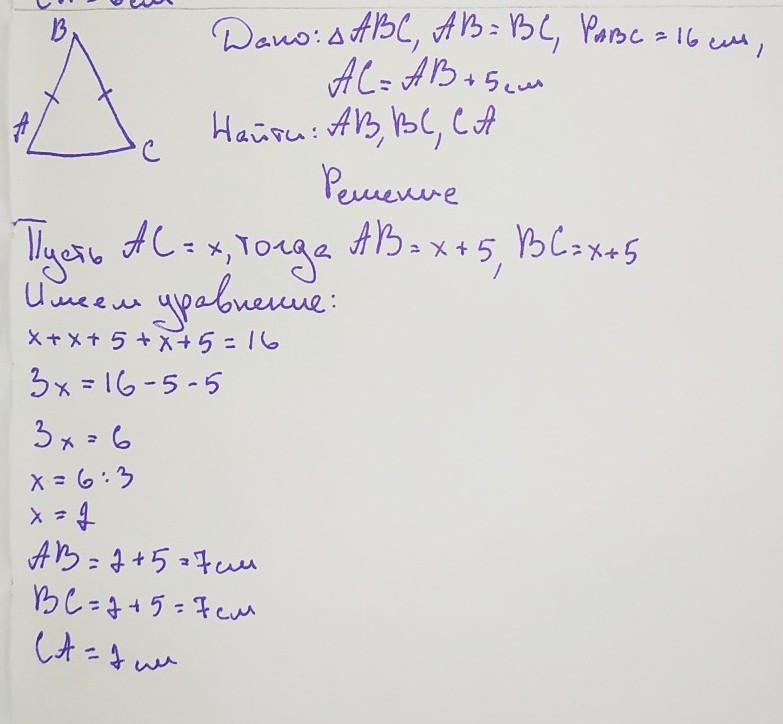 B
A
C
Дано: △ABC, AB = BC, PABC = 16 см,
AC = AB + 5 см
Найти: AB, BC, CA
Решение
Пусть AC = x, тогда AB = x + 5, BC = x + 5
Имеем уравнение:
x + x + 5 + x + 5 = 16
3x = 16 - 5 - 5
3x = 6
x = 6 : 3
x = 2
AB = 2 + 5 = 7 см
BC = 2 + 5 = 7 см
CA = 2 см